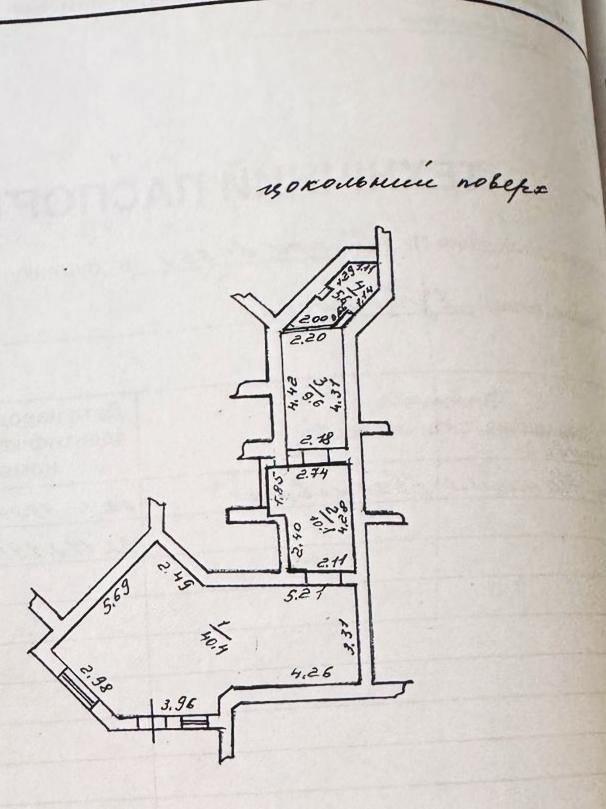 цокольний поверх
1.29
1.11
4
5.6
1.14
2.00
2.20
4.42
3
9.6
4.31
2.18
2.74
1.85
2
10.1
4.28
2.40
2.11
5.21
2.49
5.69
1
40.4
3.31
2.98
4.26
3.96